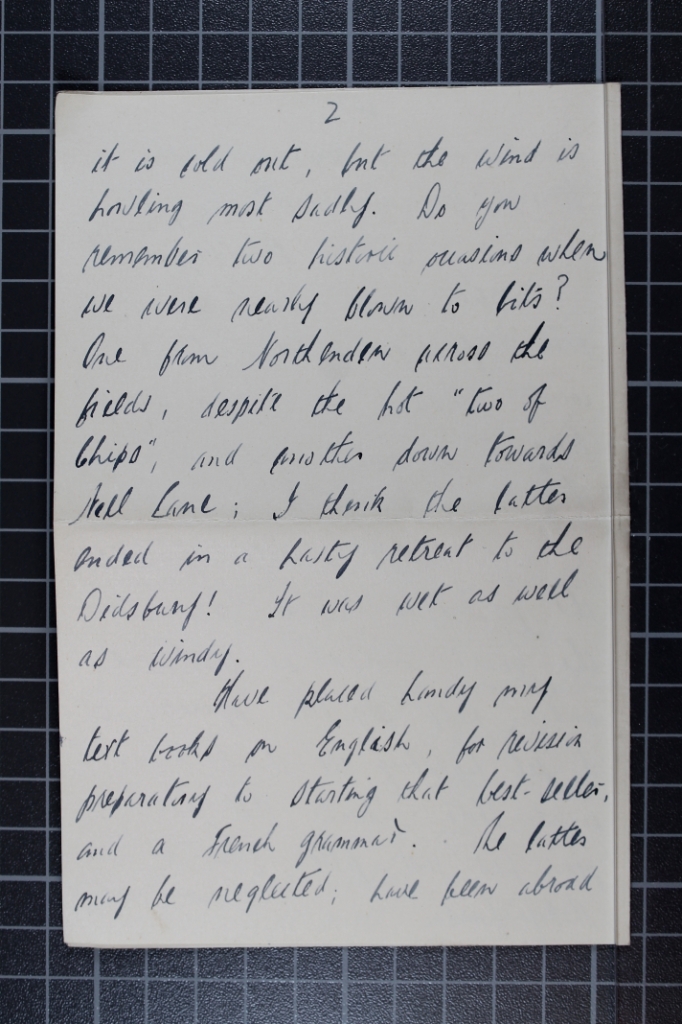 2
it is cold out, but the wind is
howling most sadly. Do you
remember two historic occasions when
we were nearly blown to bits?
One from Northenden across the
fields, despite the hot "two of
Chips", and another down towards
Nell Lane; I think the latter
ended in a hasty retreat to the
Didsbury! It was wet as well
as windy.
Have placed handy my
text books on English, for revision
preparatory to starting that best-seller,
and a French grammar. The latter
may be neglected; have been abroad